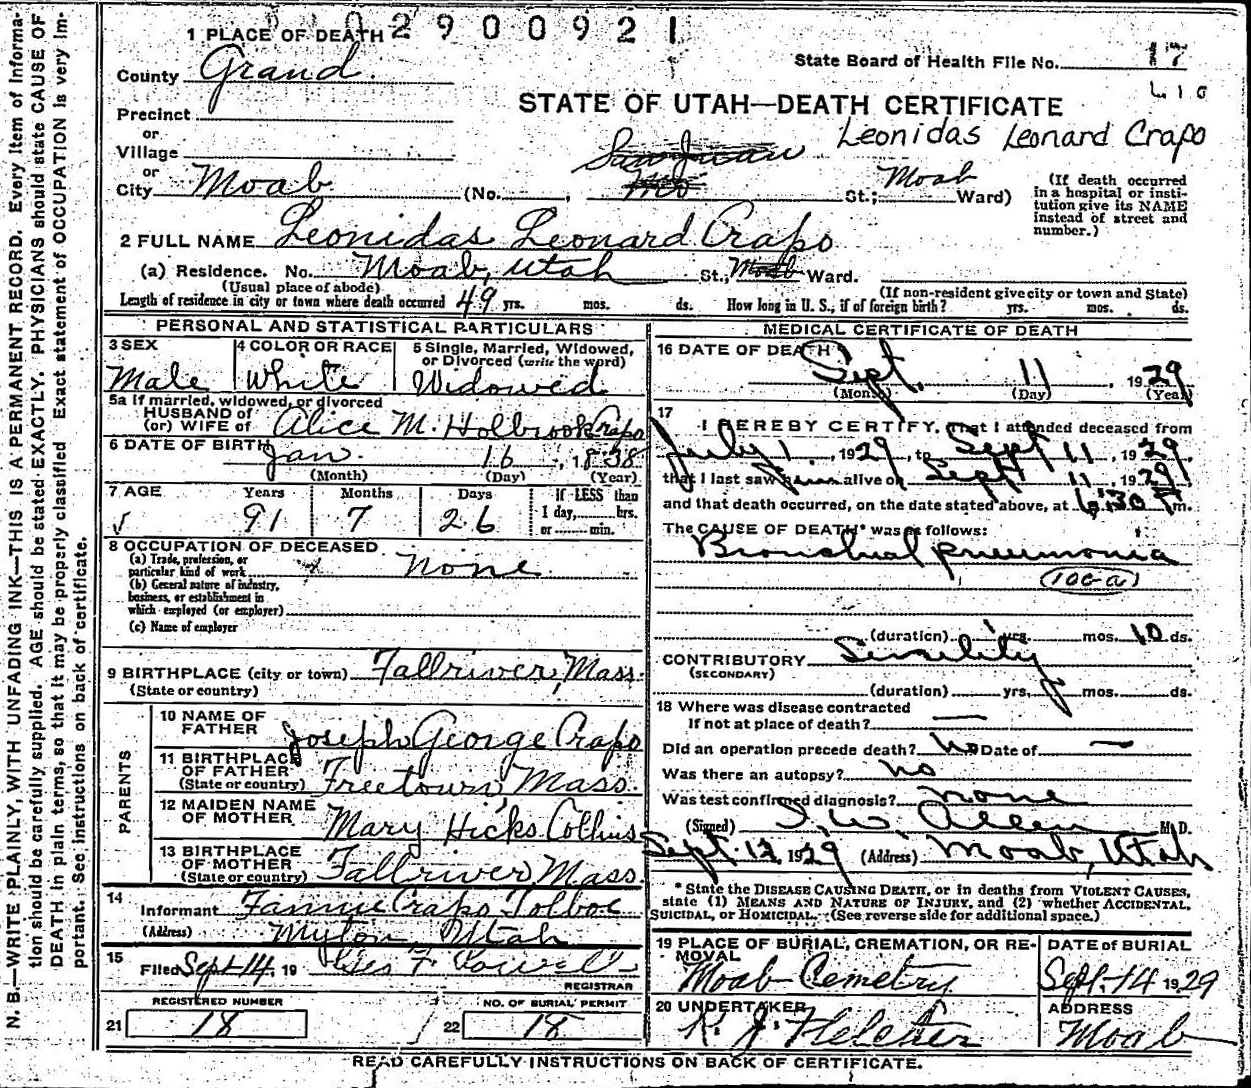 02900921
1 PLACE OF DEATH
State Board of Health File No. 17
County Grand
STATE OF UTAH—DEATH CERTIFICATE
Precinct
or
Leonidas Leonard Crapo
Village
San Juan
or
City Moab (No. , Mo St.; Moab Ward)
(If death occurred
in a hospital or insti-
tution give its NAME
instead of street and
number.)
2 FULL NAME Leonidas Leonard Crapo
(a) Residence. No. Moab, Utah St., Moab Ward.
(Usual place of abode) (If non-resident give city or town and State)
Length of residence in city or town where death occurred 49 yrs. mos. ds. How long in U. S., if of foreign birth? yrs. mos. ds.
PERSONAL AND STATISTICAL PARTICULARS
3 SEX 4 COLOR OR RACE 5 Single, Married, Widowed,
or Divorced (write the word)
Male White Widowed
5a If married, widowed, or divorced
HUSBAND of
(or) WIFE of Alice M. Holbrook Crapo
6 DATE OF BIRTH
Jan. 16, 1838
(Month) (Day) (Year)
7 AGE Years Months Days If LESS than
91 7 26 1 day, hrs.
or min.
8 OCCUPATION OF DECEASED
(a) Trade, profession, or
particular kind of work none
(b) General nature of industry,
business, or establishment in
which employed (or employer)
(c) Name of employer
9 BIRTHPLACE (city or town) Fallriver, Mass.
(State or country)
PARENTS
10 NAME OF
FATHER Joseph George Crapo
11 BIRTHPLACE
OF FATHER
(State or country) Freetown, Mass.
12 MAIDEN NAME
OF MOTHER Mary Hicks Collins
13 BIRTHPLACE
OF MOTHER
(State or country) Fallriver, Mass.
14
Informant Fannie Crapo Tolboe
(Address) Myton Utah
15
Filed Sept 14, 19 F. Powell
REGISTRAR
REGISTERED NUMBER NO. OF BURIAL PERMIT
21 18 22 18
MEDICAL CERTIFICATE OF DEATH
16 DATE OF DEATH
Sept. 11, 1929
(Month) (Day) (Year)
17
I HEREBY CERTIFY, That I attended deceased from
July 1, 1929, to Sept 11, 1929,
that I last saw him alive on Sept 11, 1929,
and that death occurred, on the date stated above, at 6:30 P m.
The CAUSE OF DEATH* was as follows:
Bronchial pneumonia
(100-a)
(duration) yrs. mos. 10 ds.
CONTRIBUTORY Senility
(SECONDARY)
(duration) yrs. mos. ds.
18 Where was disease contracted
If not at place of death? —
Did an operation precede death? No Date of —
Was there an autopsy? no
Was test confirmed diagnosis? none
(Signed) I. W. Allen M.D.
Sept. 12, 1929 (Address) Moab, Utah
* State the DISEASE CAUSING DEATH, or in deaths from VIOLENT CAUSES,
state (1) MEANS AND NATURE OF INJURY, and (2) whether ACCIDENTAL,
SUICIDAL, or HOMICIDAL. (See reverse side for additional space.)
19 PLACE OF BURIAL, CREMATION, OR RE-
MOVAL DATE of BURIAL
Moab Cemetry Sept. 14 1929
20 UNDERTAKER ADDRESS
Moab
READ CAREFULLY INSTRUCTIONS ON BACK OF CERTIFICATE.
N. B.—WRITE PLAINLY, WITH UNFADING INK—THIS IS A PERMANENT RECORD. Every item of Informa-
tion should be carefully supplied. AGE should be stated EXACTLY. PHYSICIANS should state CAUSE OF
DEATH in plain terms, so that it may be properly classified Exact statement of OCCUPATION is very Im-
portant. See instructions on back of certificate.